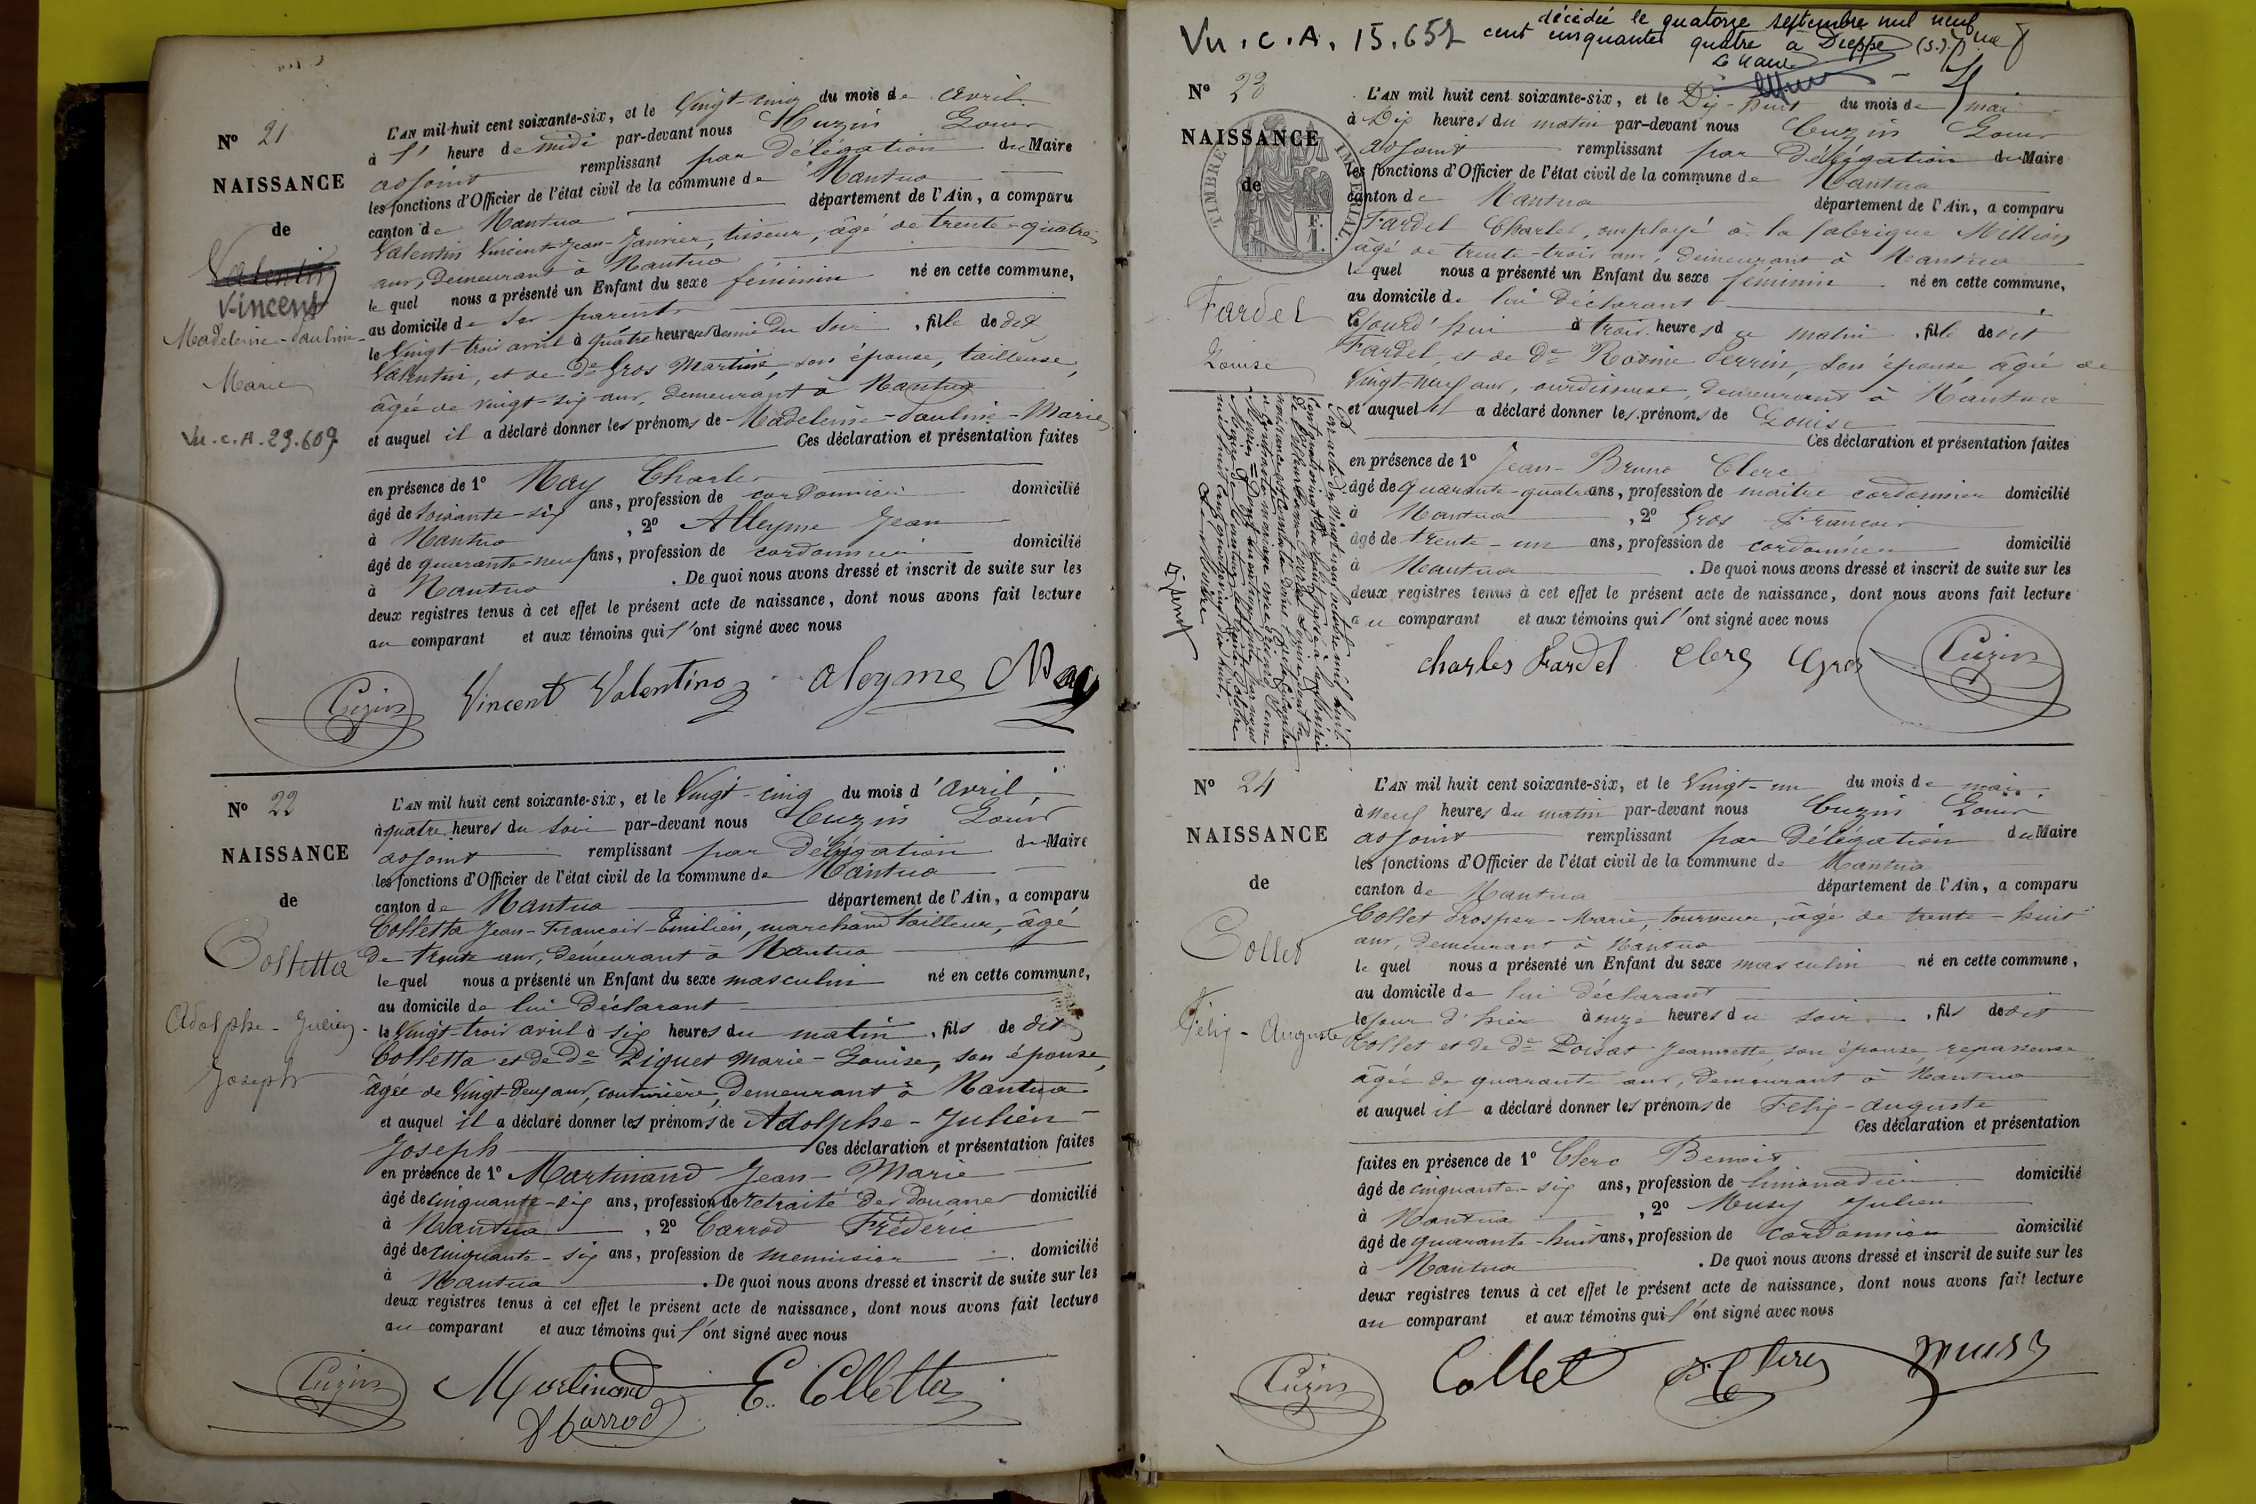 Nº 21
NAISSANCE
de
Valentin
Vincent
Madeleine-Pauline-
Marie
Vu.C.A.29.609
L'AN mil huit cent soixante-six, et le Vingt-cinq du mois de avril
à l' heure de midi par-devant nous Cuzin Louis
adjoint remplissant par délégation du Maire
les fonctions d'Officier de l'état civil de la commune de Nantua
canton de Nantua département de l'Ain, a comparu
Valentin Vincent-Jean-Janvier, tisseur, âgé de trente-quatre
ans, demeurant à Nantua
le quel nous a présenté un Enfant du sexe féminin né en cette commune,
au domicile de ses parents
le Vingt-trois avril à quatre heures demie du soir , fille de dit
Valentin, et de De Gros Martine, son épouse, tailleuse,
âgée de vingt-six ans, demeurant à Nantua
et auquel il a déclaré donner les prénoms de Madeleine-Pauline-Marie
Ces déclaration et présentation faites
en présence de 1º May Charles
âgé de soixante-six ans, profession de cordonnier domicilié
à Nantua , 2º Alleyme Jean
âgé de quarante-neuf ans, profession de cordonnier domicilié
à Nantua . De quoi nous avons dressé et inscrit de suite sur les
deux registres tenus à cet effet le présent acte de naissance, dont nous avons fait lecture
au comparant et aux témoins qui l'ont signé avec nous
Cuzin Vincent Valentino aleyme May
Nº 22
NAISSANCE
de
Colletta
Adolphe-Julien-
Joseph
L'AN mil huit cent soixante-six, et le Vingt-cinq du mois d'avril,
à quatre heures du soir par-devant nous Cuzin Louis
adjoint remplissant par délégation du Maire
les fonctions d'Officier de l'état civil de la commune de Nantua
canton de Nantua département de l'Ain, a comparu
Colletta Jean-François-Emilien, marchand tailleur, âgé
de trente ans, demeurant à Nantua
le quel nous a présenté un Enfant du sexe masculin né en cette commune,
au domicile de lui déclarant
le Vingt-trois avril à six heures du matin , fils de dit
Colletta et de De Piquet Marie-Louise, son épouse,
âgée de Vingt-deux ans, couturière, demeurant à Nantua
et auquel il a déclaré donner les prénoms de Adolphe-Julien-
Joseph Ces déclaration et présentation faites
en présence de 1º Martinand Jean-Marie
âgé de cinquante-six ans, profession de retraité des douanes domicilié
à Nantua , 2º Carrod Frédéric
âgé de cinquante-six ans, profession de menuisier domicilié
à Nantua . De quoi nous avons dressé et inscrit de suite sur les
deux registres tenus à cet effet le présent acte de naissance, dont nous avons fait lecture
au comparant et aux témoins qui l'ont signé avec nous
Cuzin Martinand E. Colletta
Carrod
décédée le quatorze septembre mil neuf
Vu.C.A. 15.652 cent cinquante quatre à Dieppe (S.)
Nº 23
NAISSANCE
de
TIMBRE IMPERIAL
Fardel
Louise
L'AN mil huit cent soixante-six, et le Dix-huit du mois de mai
à Dix heures du matin par-devant nous Cuzin Louis
adjoint remplissant par délégation du Maire
les fonctions d'Officier de l'état civil de la commune de Nantua
canton de Nantua département de l'Ain, a comparu
Fardel Charles, employé à la fabrique Million
âgé de trente-trois ans, demeurant à Nantua
le quel nous a présenté un Enfant du sexe féminin né en cette commune,
au domicile de lui déclarant
le jourd'hui à trois heures du matin , fille de dit
Fardel, et de De Rosine Perrin, son épouse âgée de
Vingt-neuf ans, ourdisseuse, demeurant à Nantua
et auquel il a déclaré donner les prénoms de Louise
Ces déclaration et présentation faites
en présence de 1º Jean-Bruno Clerc
âgé de quarante-quatre ans, profession de maître cordonnier domicilié
à Nantua , 2º Gros François
âgé de trente-un ans, profession de cordonnier domicilié
à Nantua . De quoi nous avons dressé et inscrit de suite sur les
deux registres tenus à cet effet le présent acte de naissance, dont nous avons fait lecture
au comparant et aux témoins qui l'ont signé avec nous
Charles Fardel Clerc Gros Cuzin
Nº 24
NAISSANCE
de
Collet
Félix-Auguste
L'AN mil huit cent soixante-six, et le Vingt-un du mois de mai
à neuf heures du matin par-devant nous Cuzin Louis
adjoint remplissant par délégation du Maire
les fonctions d'Officier de l'état civil de la commune de Nantua
canton de Nantua département de l'Ain, a comparu
Collet Prosper-Marie, tourneur, âgé de trente-huit
ans, demeurant à Nantua
le quel nous a présenté un Enfant du sexe masculin né en cette commune,
au domicile de lui déclarant
le jour d'hier à onze heures du soir , fils de dit
Collet et de De Poisat Jeannette, son épouse, repasseuse
âgée de quarante ans, demeurant à Nantua
et auquel il a déclaré donner les prénoms de Félix-Auguste
Ces déclaration et présentation
faites en présence de 1º Clerc Benoit
âgé de cinquante-six ans, profession de limonadier domicilié
à Nantua , 2º Musy Julien
âgé de quarante-huit ans, profession de cordonnier domicilié
à Nantua . De quoi nous avons dressé et inscrit de suite sur les
deux registres tenus à cet effet le présent acte de naissance, dont nous avons fait lecture
au comparant et aux témoins qui l'ont signé avec nous
Cuzin Collet B. Clerc Musy